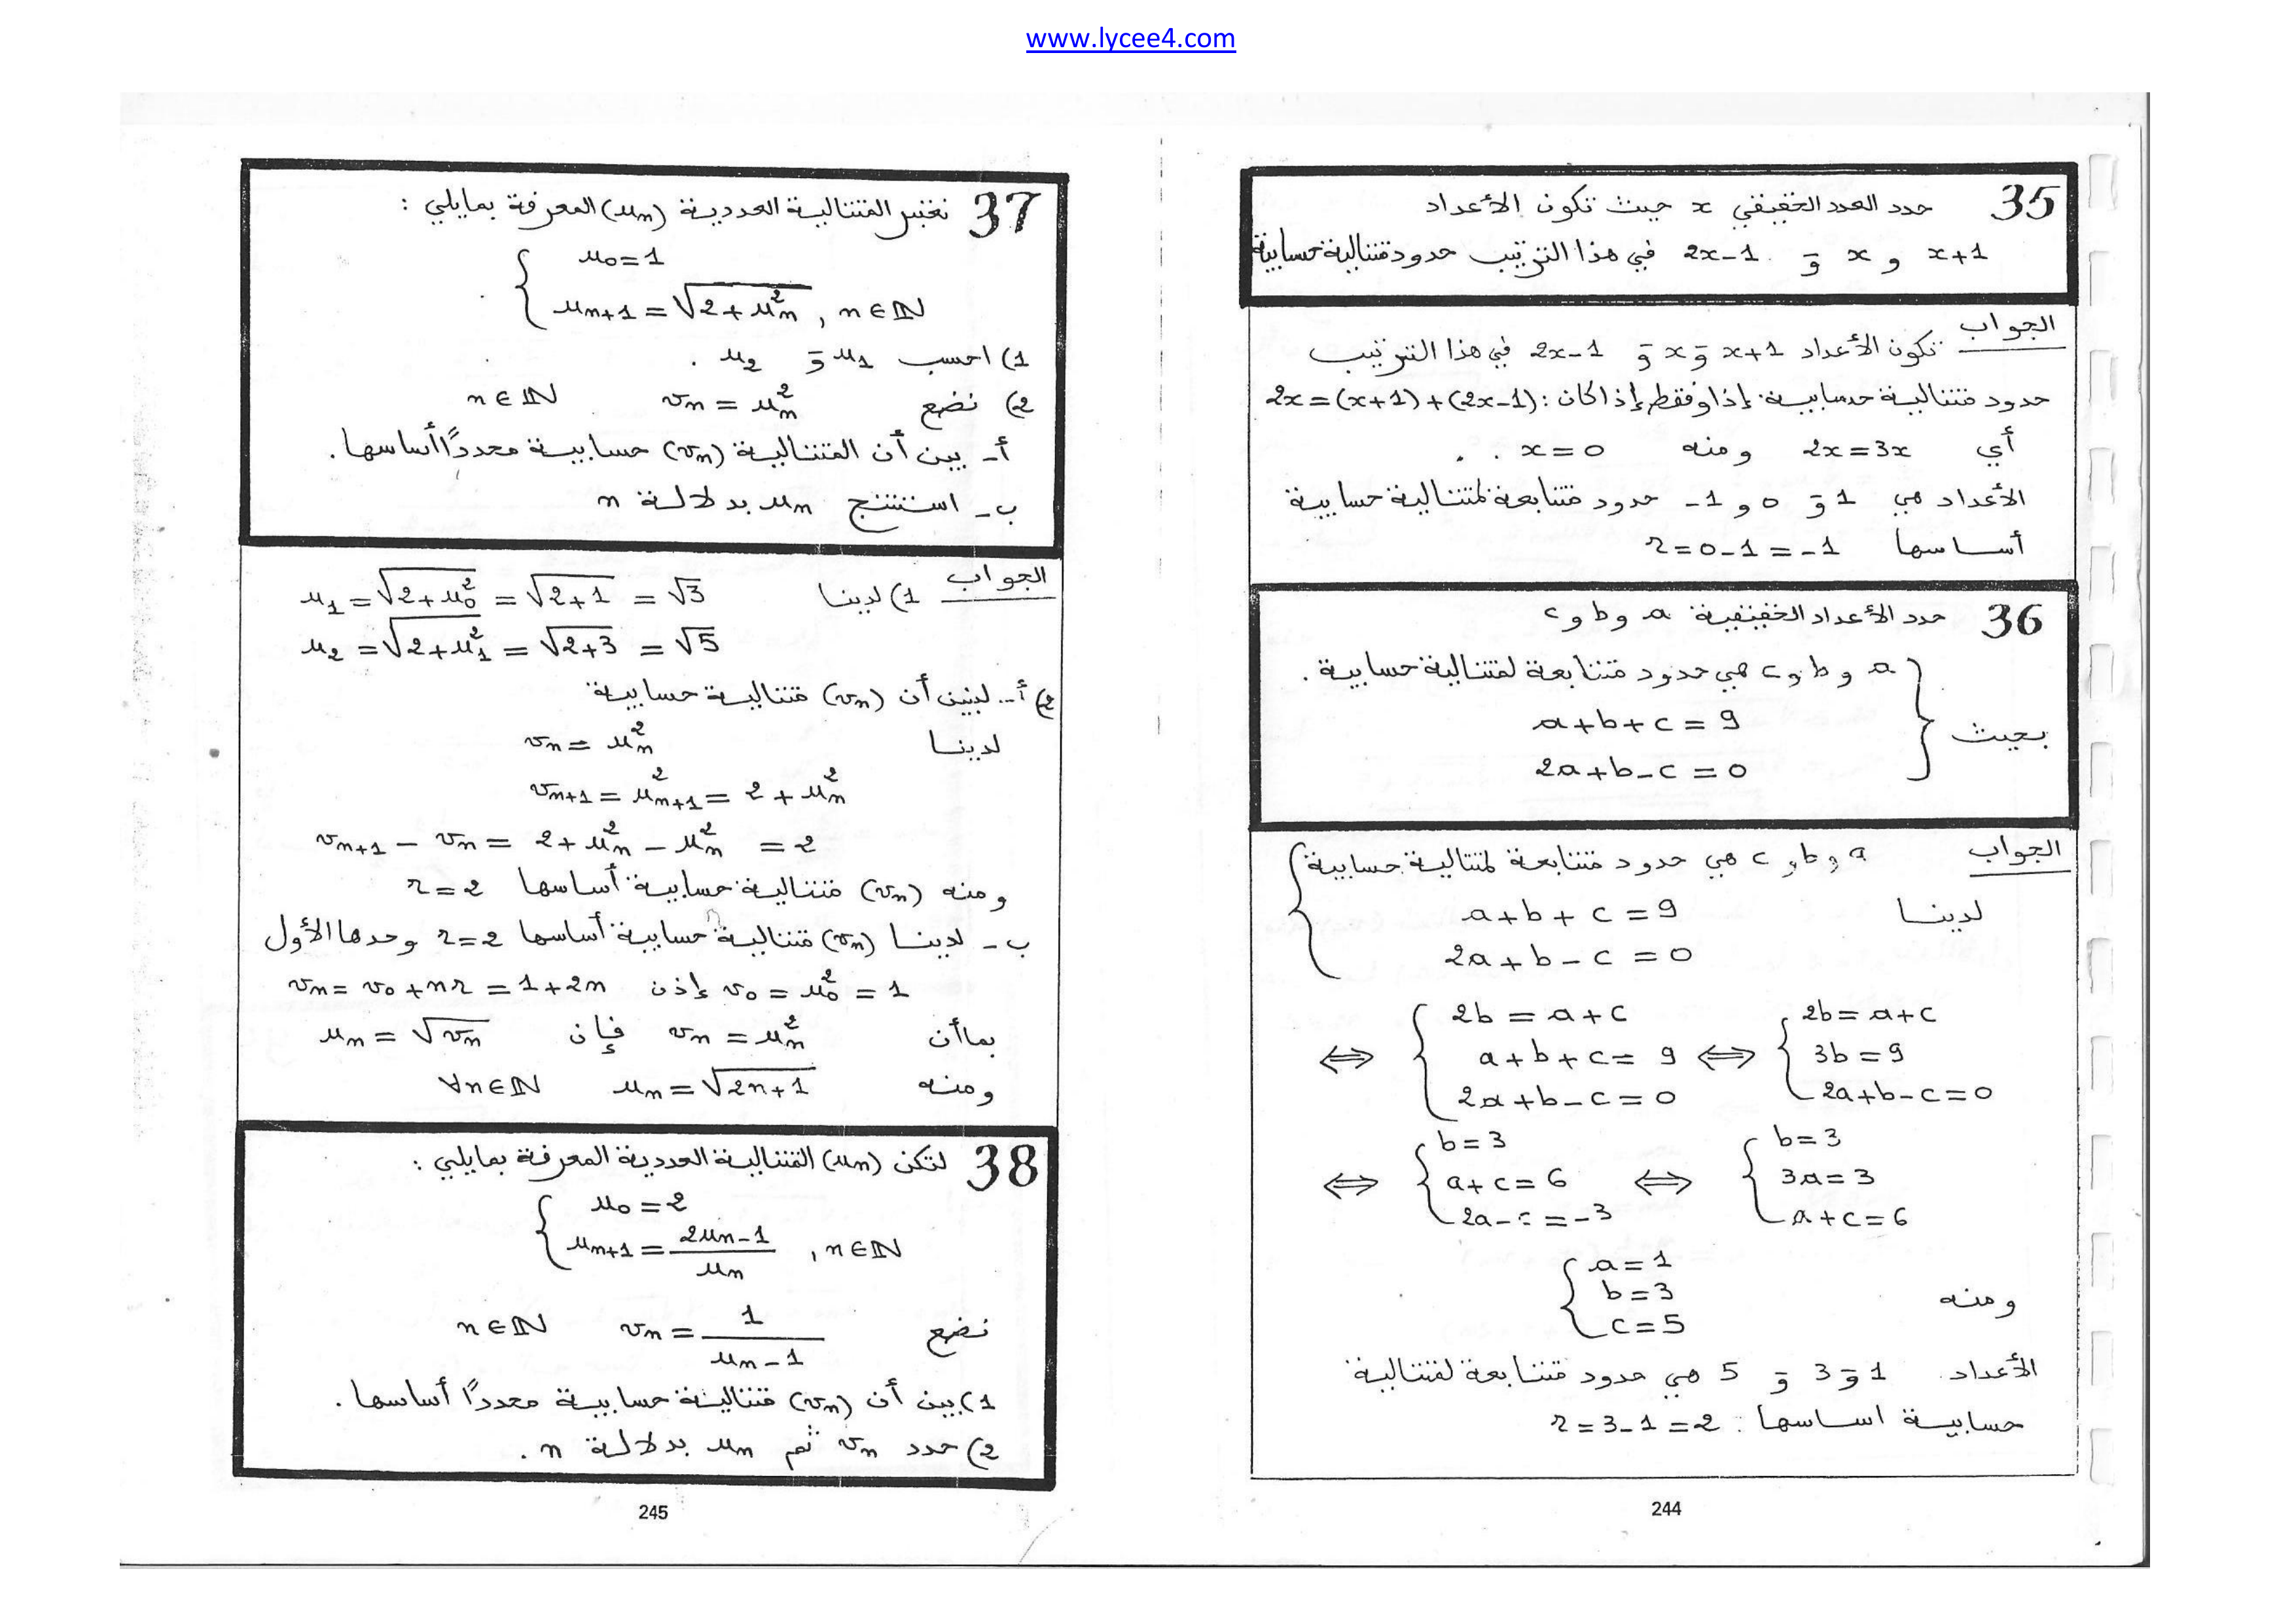 www.lycee4.com
35 حدد العدد الحقيقي x حيث تكون الأعداد
x+1 و x و 2x-1 في هذا الترتيب حدود متتالية حسابية
الجواب
تكون الأعداد x+1 و x و 2x-1 في هذا الترتيب
حدود متتالية حسابية إذا وفقط إذا كان: 2x=(x+1)+(2x-1)
أي 2x=3x ومنه x=0 .
الأعداد هي 1 و 0 و -1 حدود متتابعة لمتتالية حسابية
أساسها r=0-1=-1
36 حدد الأعداد الحقيقية a و b و c
بحيث { a و b و c هي حدود متتابعة لمتتالية حسابية.
a+b+c=9
2a+b-c=0
الجواب
a و b و c هي حدود متتابعة لمتتالية حسابية
لدينا a+b+c=9
2a+b-c=0
⇔ { 2b=a+c ⇔ { 2b=a+c
a+b+c=9 3b=9
2a+b-c=0 2a+b-c=0
⇔ { b=3 ⇔ { b=3
a+c=6 3a=3
2a-c=-3 a+c=6
ومنه { a=1
b=3
c=5
الأعداد 1 و 3 و 5 هي حدود متتابعة لمتتالية
حسابية اساسها: r=3-1=2
244
37 نعتبر المتتالية العددية (u_n) المعرفة بمايلي :
{ u_0=1
u_{n+1}=√(2+u_n²) , n∈ℕ
1) احسب u_1 و u_2 .
2) نضع v_n=u_n² n∈ℕ
أ- بين أن المتتالية (v_n) حسابية محددًا أساسها.
ب- استنتج u_n بدلالة n
الجواب 1) لدينا u_1=√(2+u_0²)=√(2+1)=√3
u_2=√(2+u_1²)=√(2+3)=√5
2) أ- لنبين أن (v_n) متتالية حسابية
لدينا v_n=u_n²
v_{n+1}=u²_{n+1}=2+u_n²
v_{n+1}-v_n=2+u_n²-u_n²=2
ومنه (v_n) متتالية حسابية أساسها r=2
ب- لدينا (v_n) متتالية حسابية أساسها r=2 وحدها الأول
v_0=u_0²=1 إذن v_n=v_0+nr=1+2n
بما أن v_n=u_n² فإن u_n=√v_n
ومنه u_n=√(2n+1) ∀n∈ℕ
38 لتكن (u_n) المتتالية العددية المعرفة بمايلي :
{ u_0=2
u_{n+1}=(2u_n-1)/u_n , n∈ℕ
نضع v_n=1/(u_n-1) n∈ℕ
1) بين أن (v_n) متتالية حسابية محددًا أساسها.
2) حدد v_n ثم u_n بدلالة n .
245